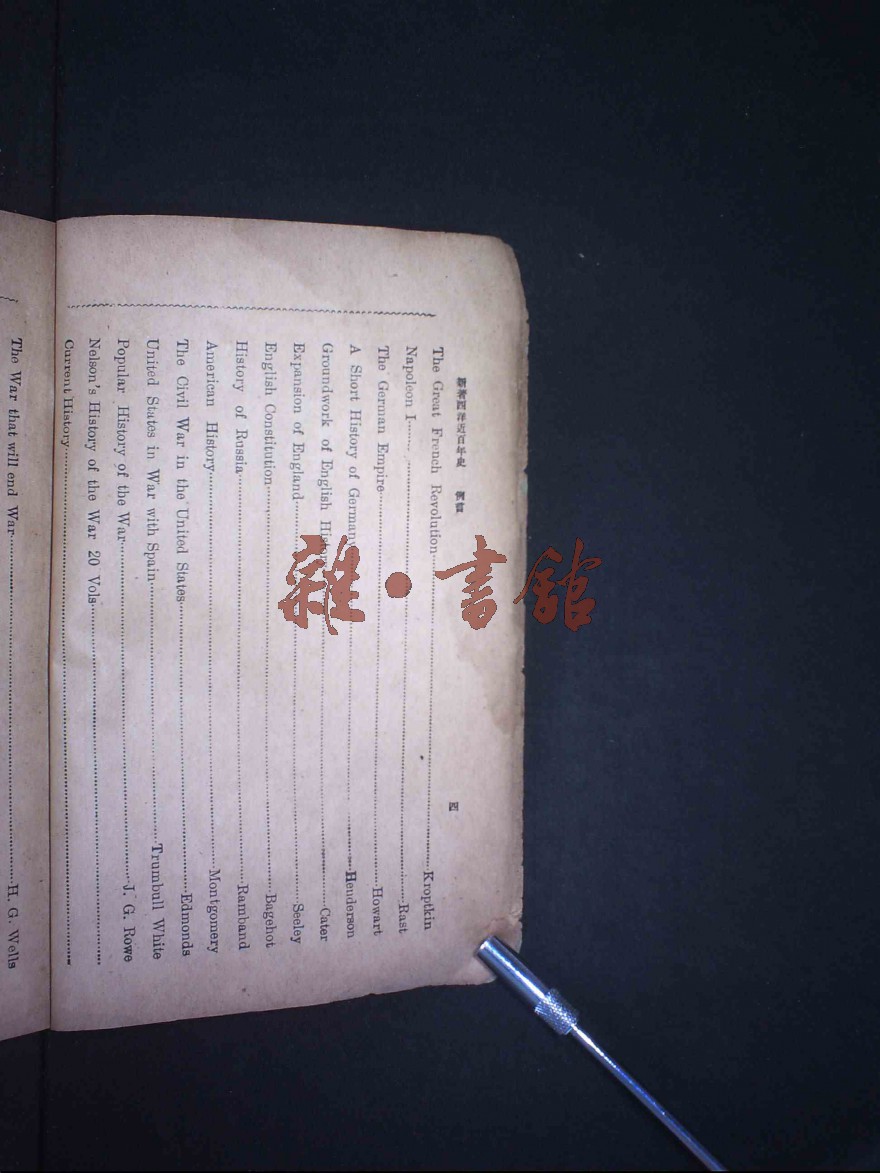 新著西洋近百年史 例言 四
The Great French Revolution Kroptkin
Napoleon I Rast
The German Empire Howart
A Short History of Germany Henderson
Groundwork of English History Cater
Expansion of England Seeley
English Constitution Bagehot
History of Russia Ramband
American History Montgomery
The Civil War in the United States Edmonds
United States in War with Spain Trumbull White
Popular History of the War J. G. Rowe
Nelson's History of the War 20 Vols
Current History
The War that will end War H. G. Wells
雜·書館